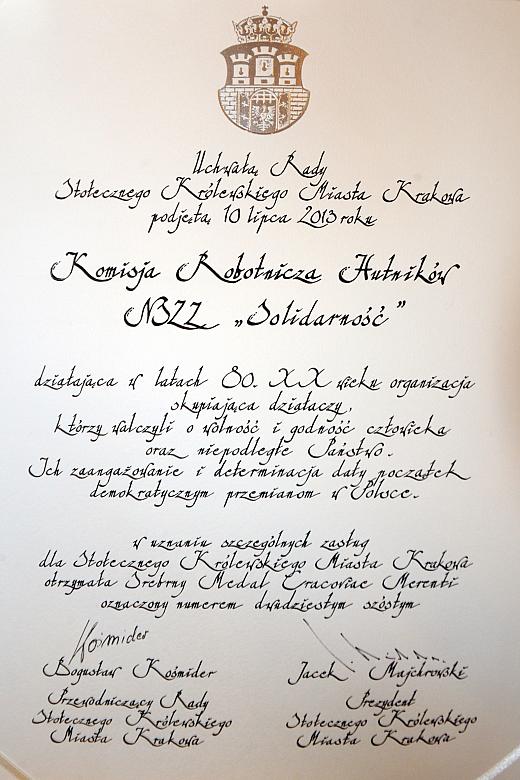 Uchwałą Rady
Stołecznego Królewskiego Miasta Krakowa
podjętą 10 lipca 2013 roku
Komisja Robotnicza Hutników
NSZZ „Solidarność”
działająca w latach 80. XX wieku organizacja
skupiająca działaczy,
którzy walczyli o wolność i godność człowieka
oraz niepodległe Państwo.
Ich zaangażowanie i determinacja dały początek
demokratycznym przemianom w Polsce.
w uznaniu szczególnych zasług
dla Stołecznego Królewskiego Miasta Krakowa
otrzymała Srebrny Medal Cracoviae Merenti
oznaczony numerem dwudziestym szóstym
Kośmider
Bogusław Kośmider
Jacek Majchrowski
Przewodniczący Rady
Stołecznego Królewskiego
Miasta Krakowa
Prezydent
Stołecznego Królewskiego
Miasta Krakowa